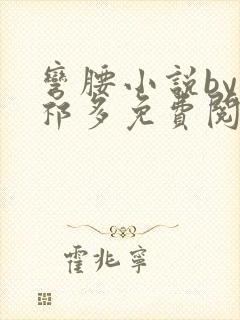 彎腰小說by
祁多免費閱
霍兆寧